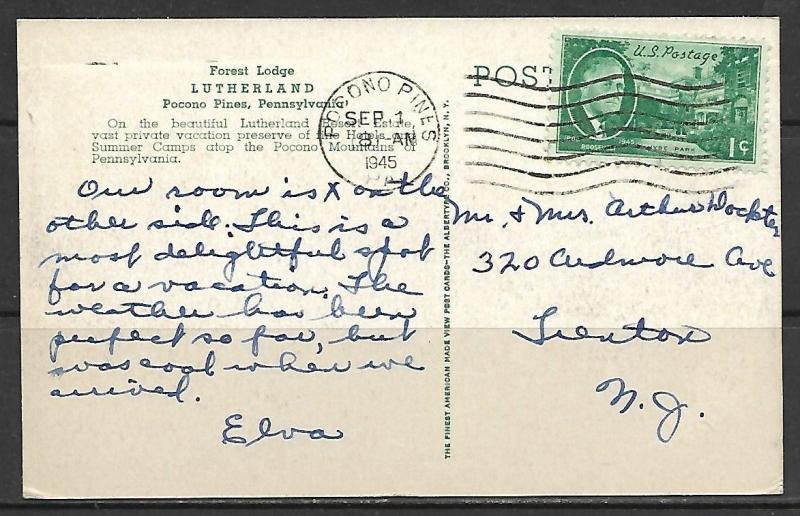 Forest Lodge
LUTHERLAND
Pocono Pines, Pennsylvania
On the beautiful Lutherland Resort Estate,
vast private vacation preserve of fine Hotels and
Summer Camps atop the Pocono Mountains of
Pennsylvania.
POCONO PINES
SEP 1
8 AM
1945
PA.
POST
U.S. Postage
1945
HYDE PARK
1¢
Our room is X on the
other side. This is a
most delightful spot
for a vacation. The
weather has been
perfect so far, but
was cool when we
arrived.
Elva
THE FINEST AMERICAN MADE VIEW POST CARDS—THE ALBERTYPE CO., BROOKLYN, N.Y.
Mr. & Mrs. Arthur
320 Ardmore Ave
Trenton
N. J.